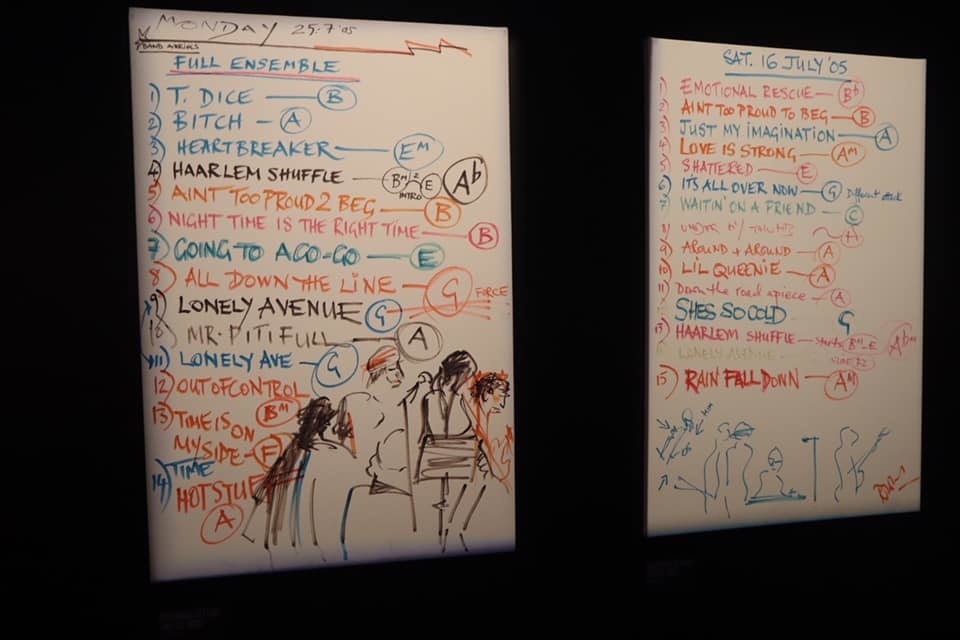 MONDAY 25·7'05
BAND ARRIVALS
FULL ENSEMBLE
1) T. DICE — B
2) BITCH — A
3) HEARTBREAKER — Em
4) HAARLEM SHUFFLE — Bm/2 E INTRO Ab
5) AINT TOO PROUD 2 BEG — B
6) NIGHT TIME IS THE RIGHT TIME — B
7) GOING TO A GO-GO — E
8) ALL DOWN THE LINE — G FORCE
9) LONELY AVENUE — G
10) MR. PITIFULL — A
11) LONELY AVE — G
12) OUT OF CONTROL
Bm
13) TIME IS ON
MY SIDE — F
14) TIME
HOT STUFF
A
SAT. 16 JULY '05
1) EMOTIONAL RESCUE — Bb
2) AINT TOO PROUD TO BEG — B
3) JUST MY IMAGINATION — A
4) LOVE IS STRONG — Am
5) SHATTERED — E
6) ITS ALL OVER NOW — G Different attack
7) WAITIN' ON A FRIEND — C
8)
9) AROUND + AROUND — A
10) LIL QUEENIE — A
11) Down the road apiece — A
SHES SO COLD G
13) HAARLEM SHUFFLE — starts Bm E Abm
LONELY AVENUE
15) RAIN FALL DOWN — Am
HIM